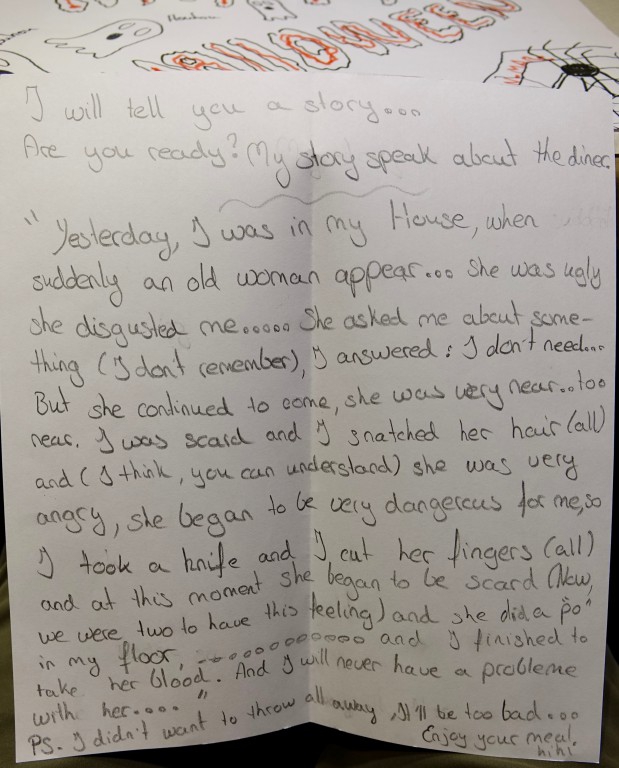 HALLOWEEN
I will tell you a story...
Are you ready? My story speak about the diner.
" Yesterday, I was in my House, when
suddenly an old woman appear... She was ugly
she disgusted me..... She asked me about some-
thing (I dont remember), I answered : I don't need....
But she continued to come, she was very near..too
near. I was scard and I snatched her hair (all)
and ( I think, you can understand) she was very
angry, she began to be very dangerous for me, so
I took a knife and I cut her fingers (all)
and at this moment she began to be scard (Now,
we were two to have this feeling) and she did a "po"
in my floor, ............ and I finished to
take her blood. And I will never have a probleme
with her.... "
PS. I didn't want to throw all away, It'll be too bad...
Enjoy your meal.
hihi